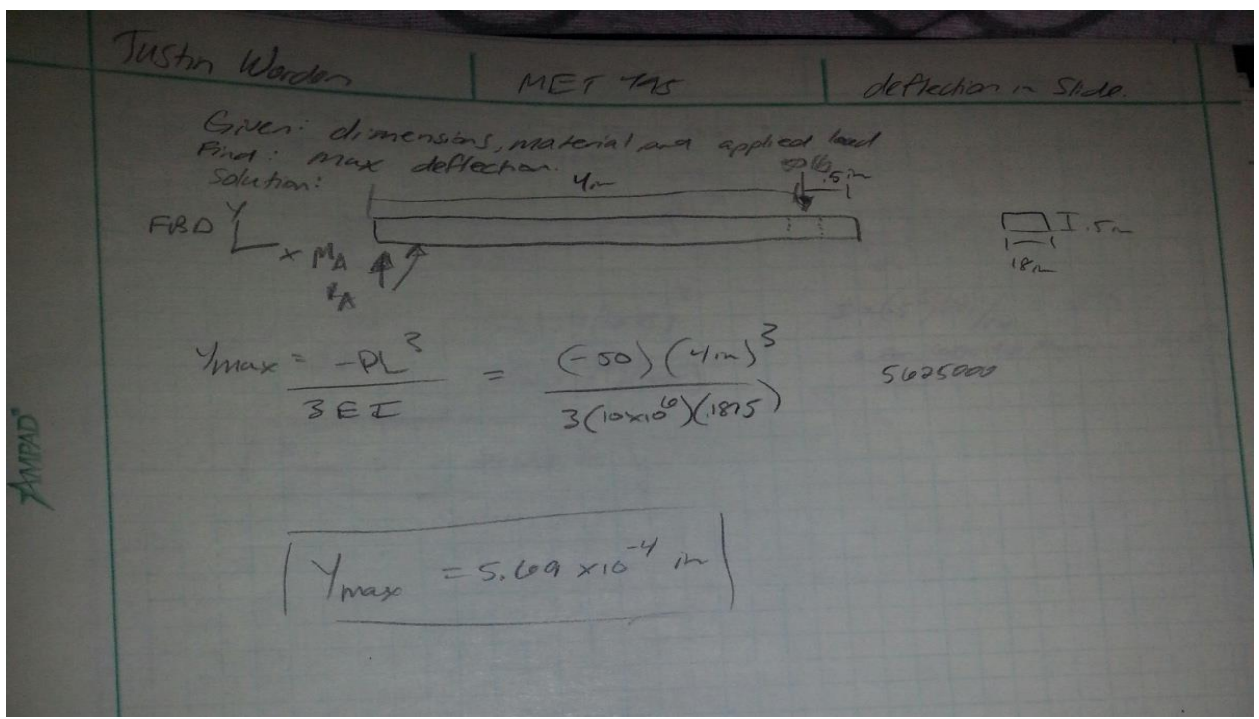 Justin Warden MET 495 deflection in Slide.
Given: dimensions, material and applied load
Find: max deflection.
Solution:
4in
.5in
FBD Y
x MA
RA
I .5in
18in
Ymax = -PL³ / 3EI = (-50)(4in)³ / 3(10x10⁶)(.1875)
5625000
Ymax = 5.69 x10⁻⁴ in
AMPAD